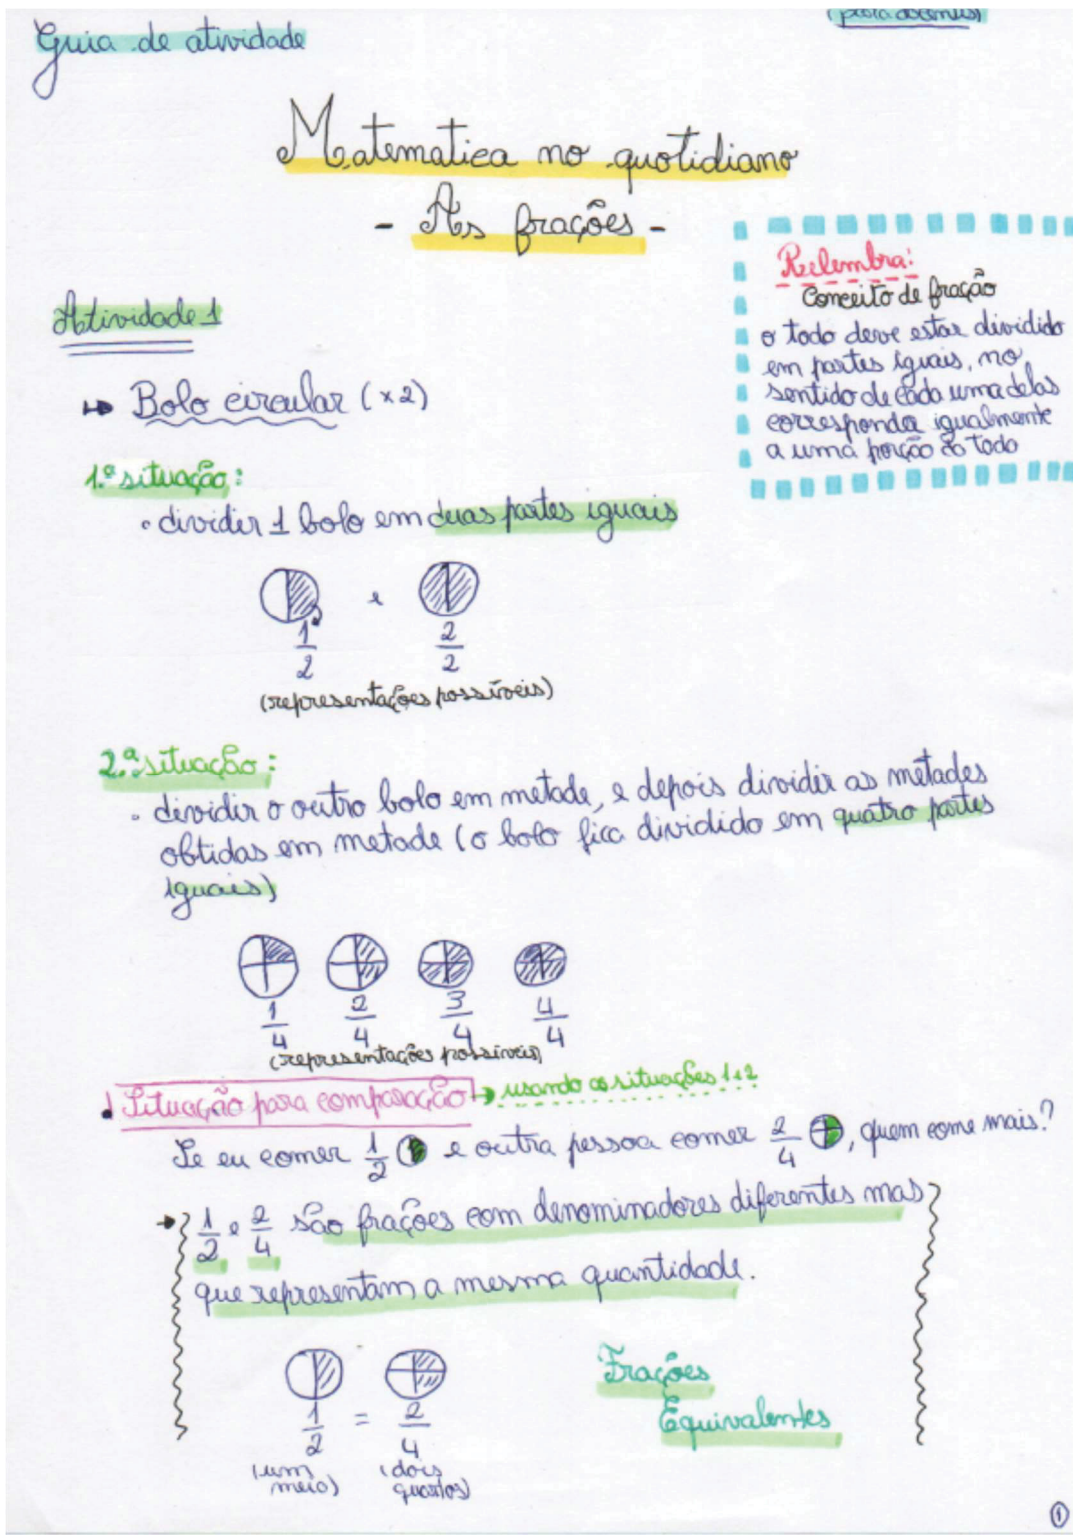 Guia de atividade
(para docentes)
Matematica no quotidiano
- As frações -
Relembra:
Conceito de fração
o todo deve estar dividido
em partes iguais, no
sentido de cada uma delas
corresponda igualmente
a uma porção do todo
Atividade 1
↦ Bolo circular (x2)
1.ª situação:
• dividir 1 bolo em duas partes iguais
e
1/2 2/2
(representações possíveis)
2.ª situação:
• dividir o outro bolo em metade, e depois dividir as metades
obtidas em metade (o bolo fica dividido em quatro partes
iguais)
1/4 2/4 3/4 4/4
(representações possíveis)
Situação para comparação → usando as situações 1 e 2
Se eu comer 1/2 e outra pessoa comer 2/4, quem come mais?
→ 1/2 e 2/4 são frações com denominadores diferentes mas
que representam a mesma quantidade.
1/2 = 2/4
(um meio) (dois quartos)
Frações
Equivalentes
1